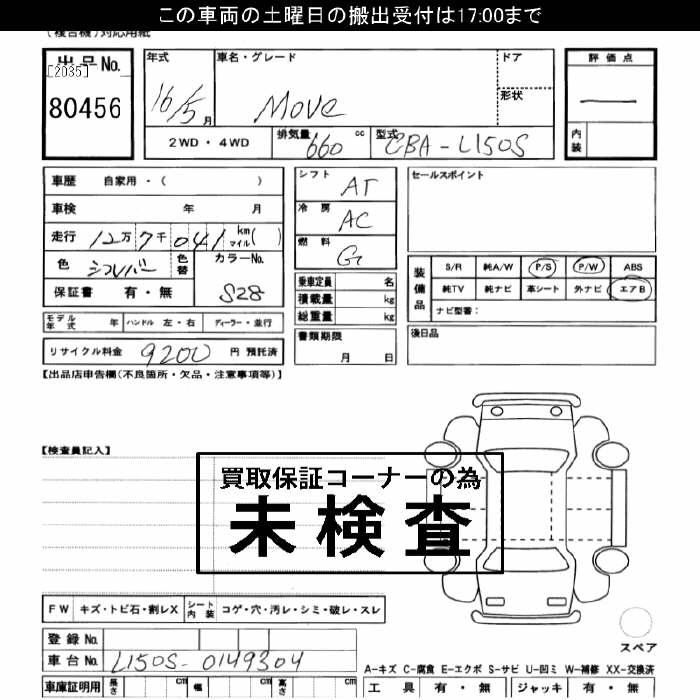 この車両の土曜日の搬出受付は17:00まで
(複合機)対応用紙
出品No.
[2035]
80456
年式
16/5月
車名・グレード
Move
ドア
形状
評価点
—
内装
2WD・4WD
排気量 660 cc
型式 CBA-L150S
車歴 自家用・( )
車検 年 月
走行 12万7千041 km マイル( )
色 シルバー 色替 カラーNo.
保証書 有・無 S28
モデル年式 年 ハンドル 左・右 ディーラー・並行
リサイクル料金 9200 円 預託済
シフト AT
冷房 AC
燃料 G
乗車定員 名
積載量 kg
総重量 kg
書類期限
月 日
セールスポイント
装備品
S/R 純A/W P/S P/W ABS
純TV 純ナビ 革シート 外ナビ エアB
ナビ型番:
後日品
【出品店申告欄(不良箇所・欠品・注意事項等)】
【検査員記入】
買取保証コーナーの為
未検査
FW キズ・トビ石・割レX シート内装 コゲ・穴・汚レ・シミ・破レ・スレ
登録No.
車台No. L150S-0149304
車庫証明用 長さ cm 幅 cm 高さ cm
スペア
A-キズ C-腐食 E-エクボ S-サビ U-凹ミ W-補修 XX-交換済
工具 有・無 ジャッキ 有・無